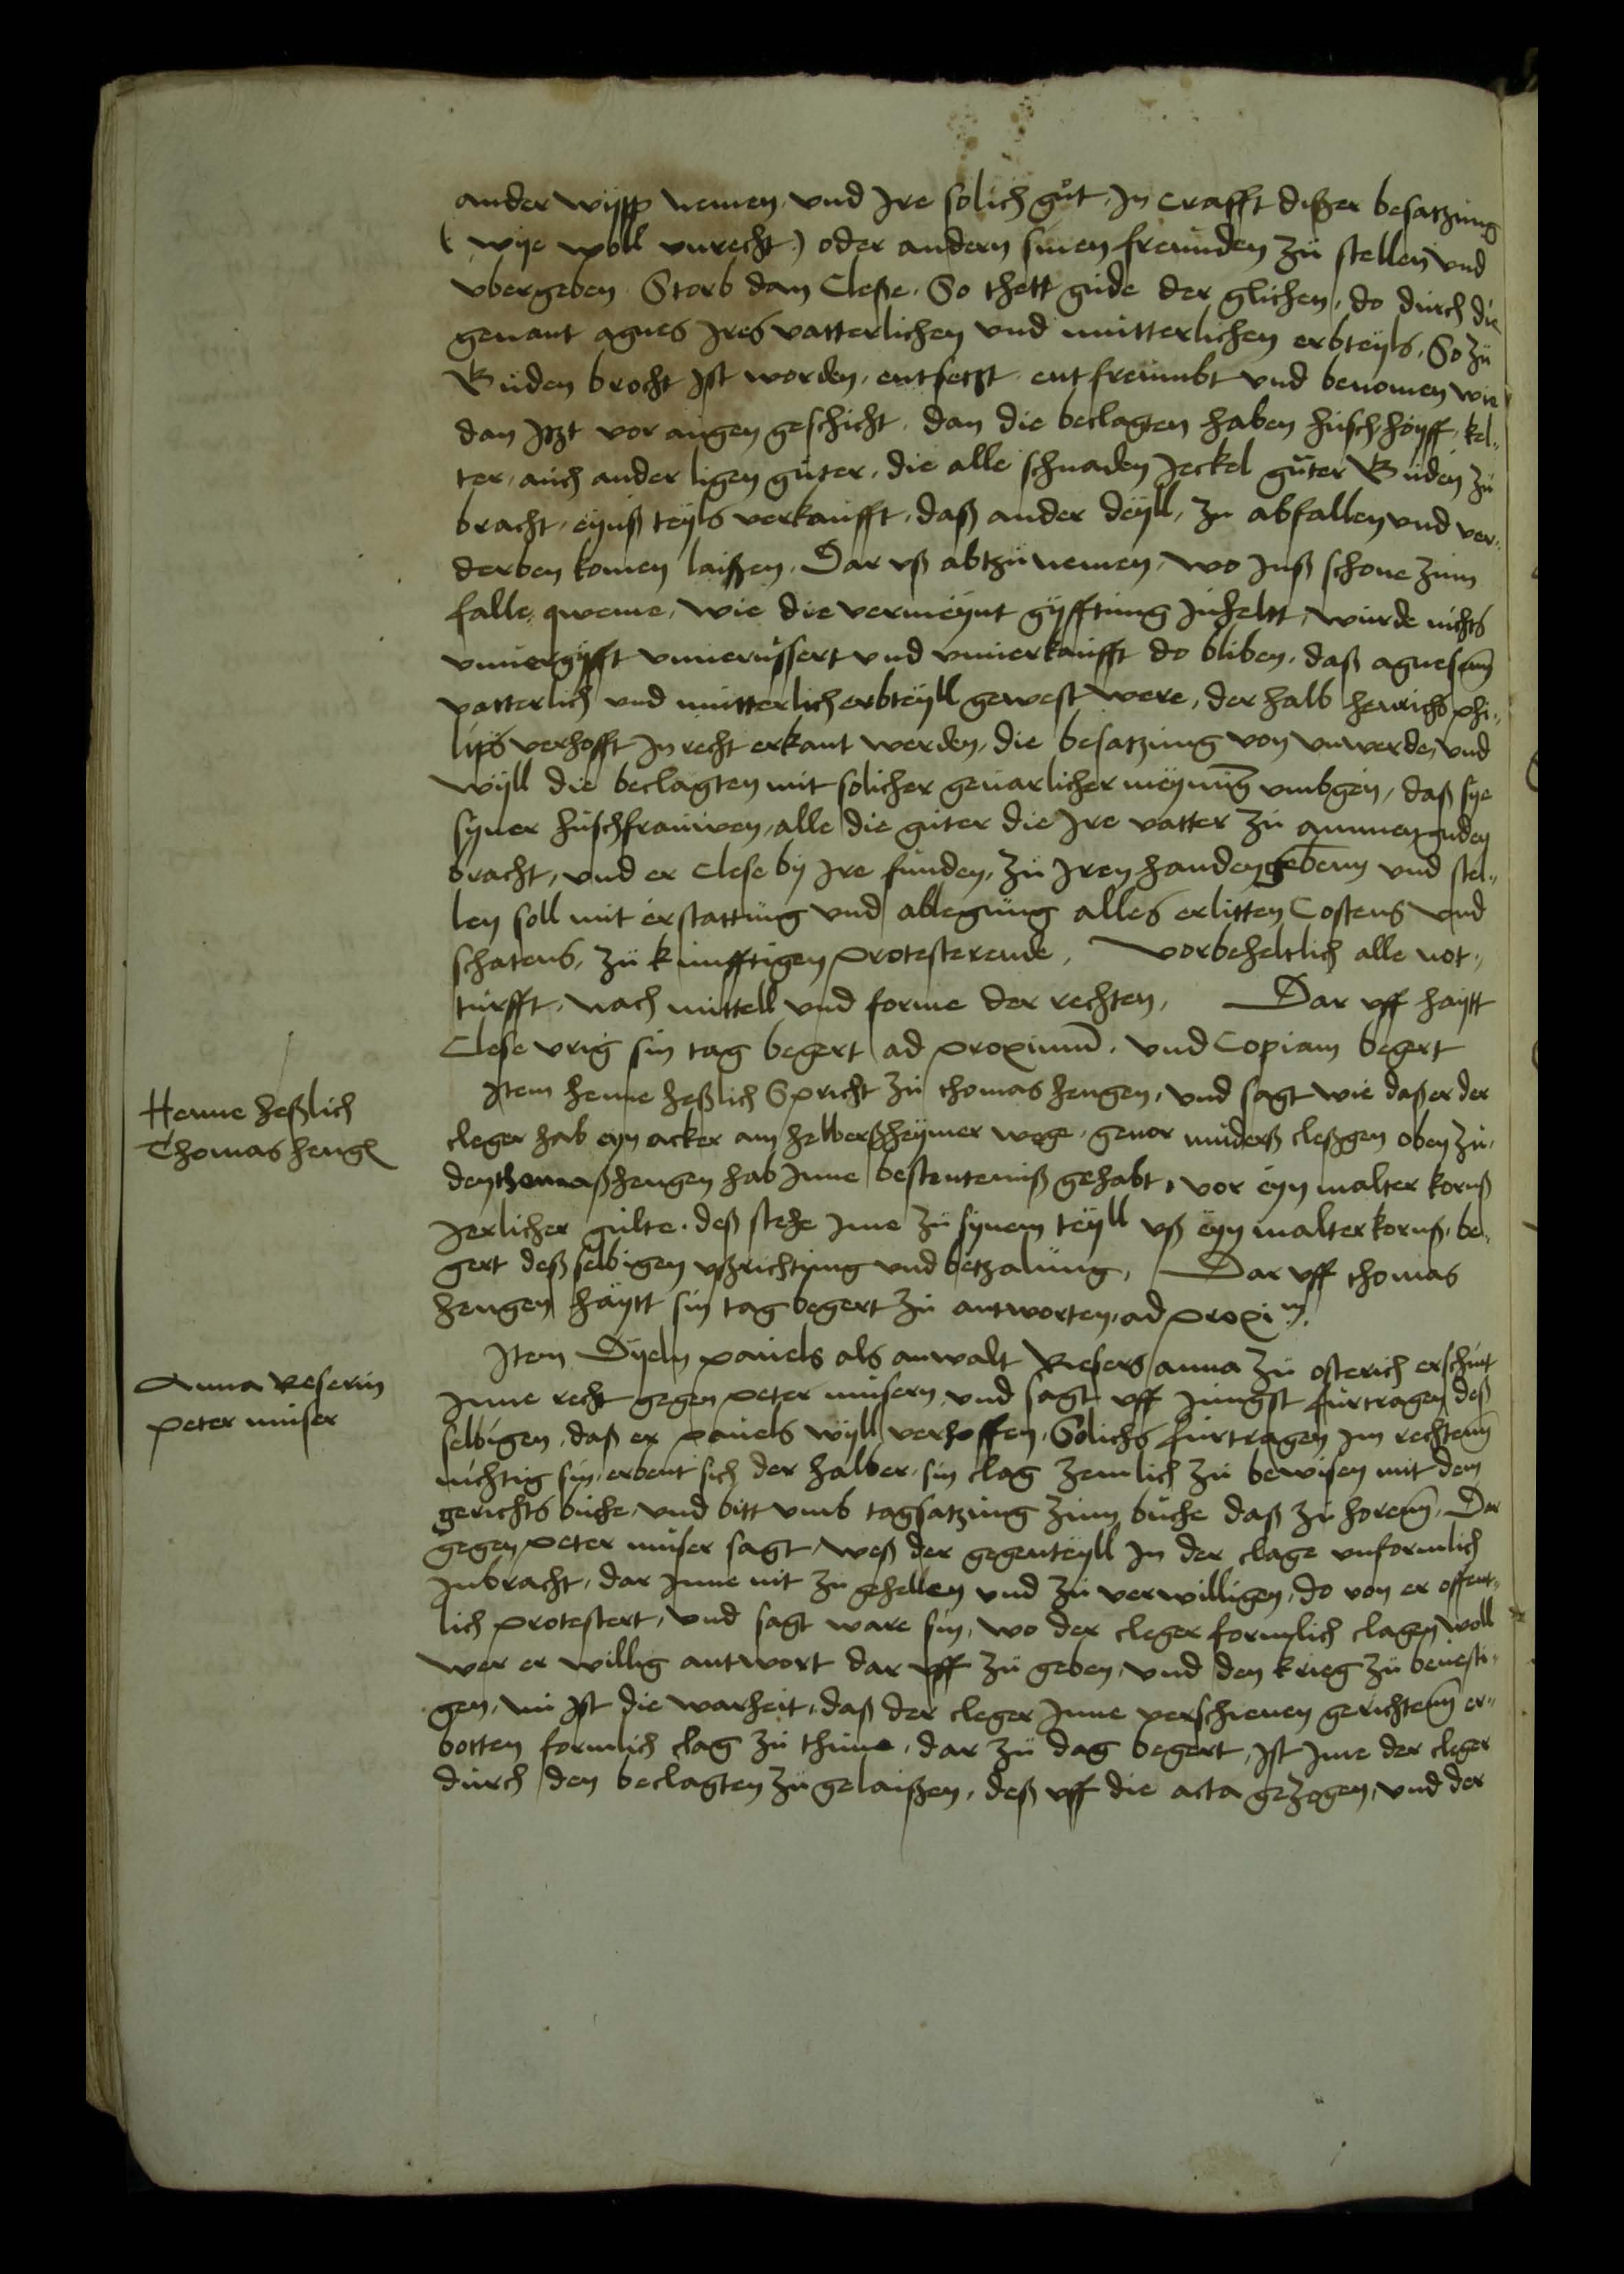 ander wypp nemen, vnd Jre solich gůt, Jn crafft dißer besatzung
(wye woll vnrecht) oder andern sinen freunden zu stellen vnd
vbergeben. Storb dan Cleße. So thett gude der glichen, do durch die
genant agnes Jres vatterlichen vnd mutterlichen erbteyls, So zu
Buden brocht Jst worden, entsetzt entfreumbt vnd benomen wie
dan Jtzt vor augen geschicht, dan die beclagten haben husch hoyff, kel„
ter, auch ander ligen guter, die alle schnaden Jeckel guter Buden zu
bracht, eynß teyls verkaufft, daß ander deyll, zu abfallen vnd ver„
derben komen laißen. Dar vß abtzunemen, wo Jnß schone zum
falle qweme, wie die vermeynt gyfftung Jnheltt, wurde nichts
vnuergyfft vnuerussert vnd vnuerkaufft do bliben, daß agnesen̄
vatterlich vnd mutterlich erbteyll gewest were, der halb henrichs phi„
lips verhofft Jn recht erkant werden, die besatzung von vnwerden vnd
wyll die beclagten mit solicher geuarlicher meynung vmbgen, daß sye
syner huschfrauwen, alle die guter die Jre vatter zu ammen guden
bracht, vnd er Clese by Jre funden, zu Jren handen gebenn vnd stel„
len soll mit erstattung vnd ablegung alles erlitten Costens vnd
schatens, zu kunfftigen protesterende, vorbeheltlich alle not„
turfft, nach mittell vnd forme der rechten, Dar vff haytt
Clese vrig sin tag begert ad proximū, vnd Copiam begert
Henne heßlich
Thomas heng
Jtem henne heßlich Spricht zu thomas hengen, vnd sagt wie daß er der
cleger hab eyn acker am helberßheymer wege, genor muderß cleßgen oben zu,
den thomaß hengen hab Jnne bestentenniß gehabt, vor eyn malter kornß
Jerlicher gulte, deß stehe Jme zu synem teyll vß eyn malter kornß, be„
gert deß selbigen vßrichtung vnd betzalung, Dar vff thomas
hengen haytt sin tag begert zu antworten, ad proxim.
Anna Reserin
peter muser
Jtem Dyeln pauels als anwalt Resers anna zu osterich erschint
Jnne recht gegen peter musern, vnd sagt vff Jungst furtragen deß
selbigen, daß er pauels wyll verhoffen, Solichs furtragen Jm rechten̄
nichtig sin, erbeut sich der halber, sin clag zemlich zu bewisen mit dem
gerichts buche, vnd bitt vmb tagsatzung zum buche daß zu horen̄, Dar
gegen peter muser sagt, weß der gegenteyll Jn der clage vnformlich
Jnbracht, dar Jnne nit zu gehellen vnd zu verwilligen, do von er offent„
lich protestert, vnd sagt ware sin, wo der cleger formlich clagen woll
wer er willig antwort dar vff zu geben, vnd den krieg zu beuesti„
gen, nu Jst die warheit, daß der cleger Jnne verschienen gerichten̄ er„
botten formlich clag zu thune, dar zu dag begert, Jst Jme der cleger
durch den beclagten zugelaißen, deß vff die acta gezogen, vnd der